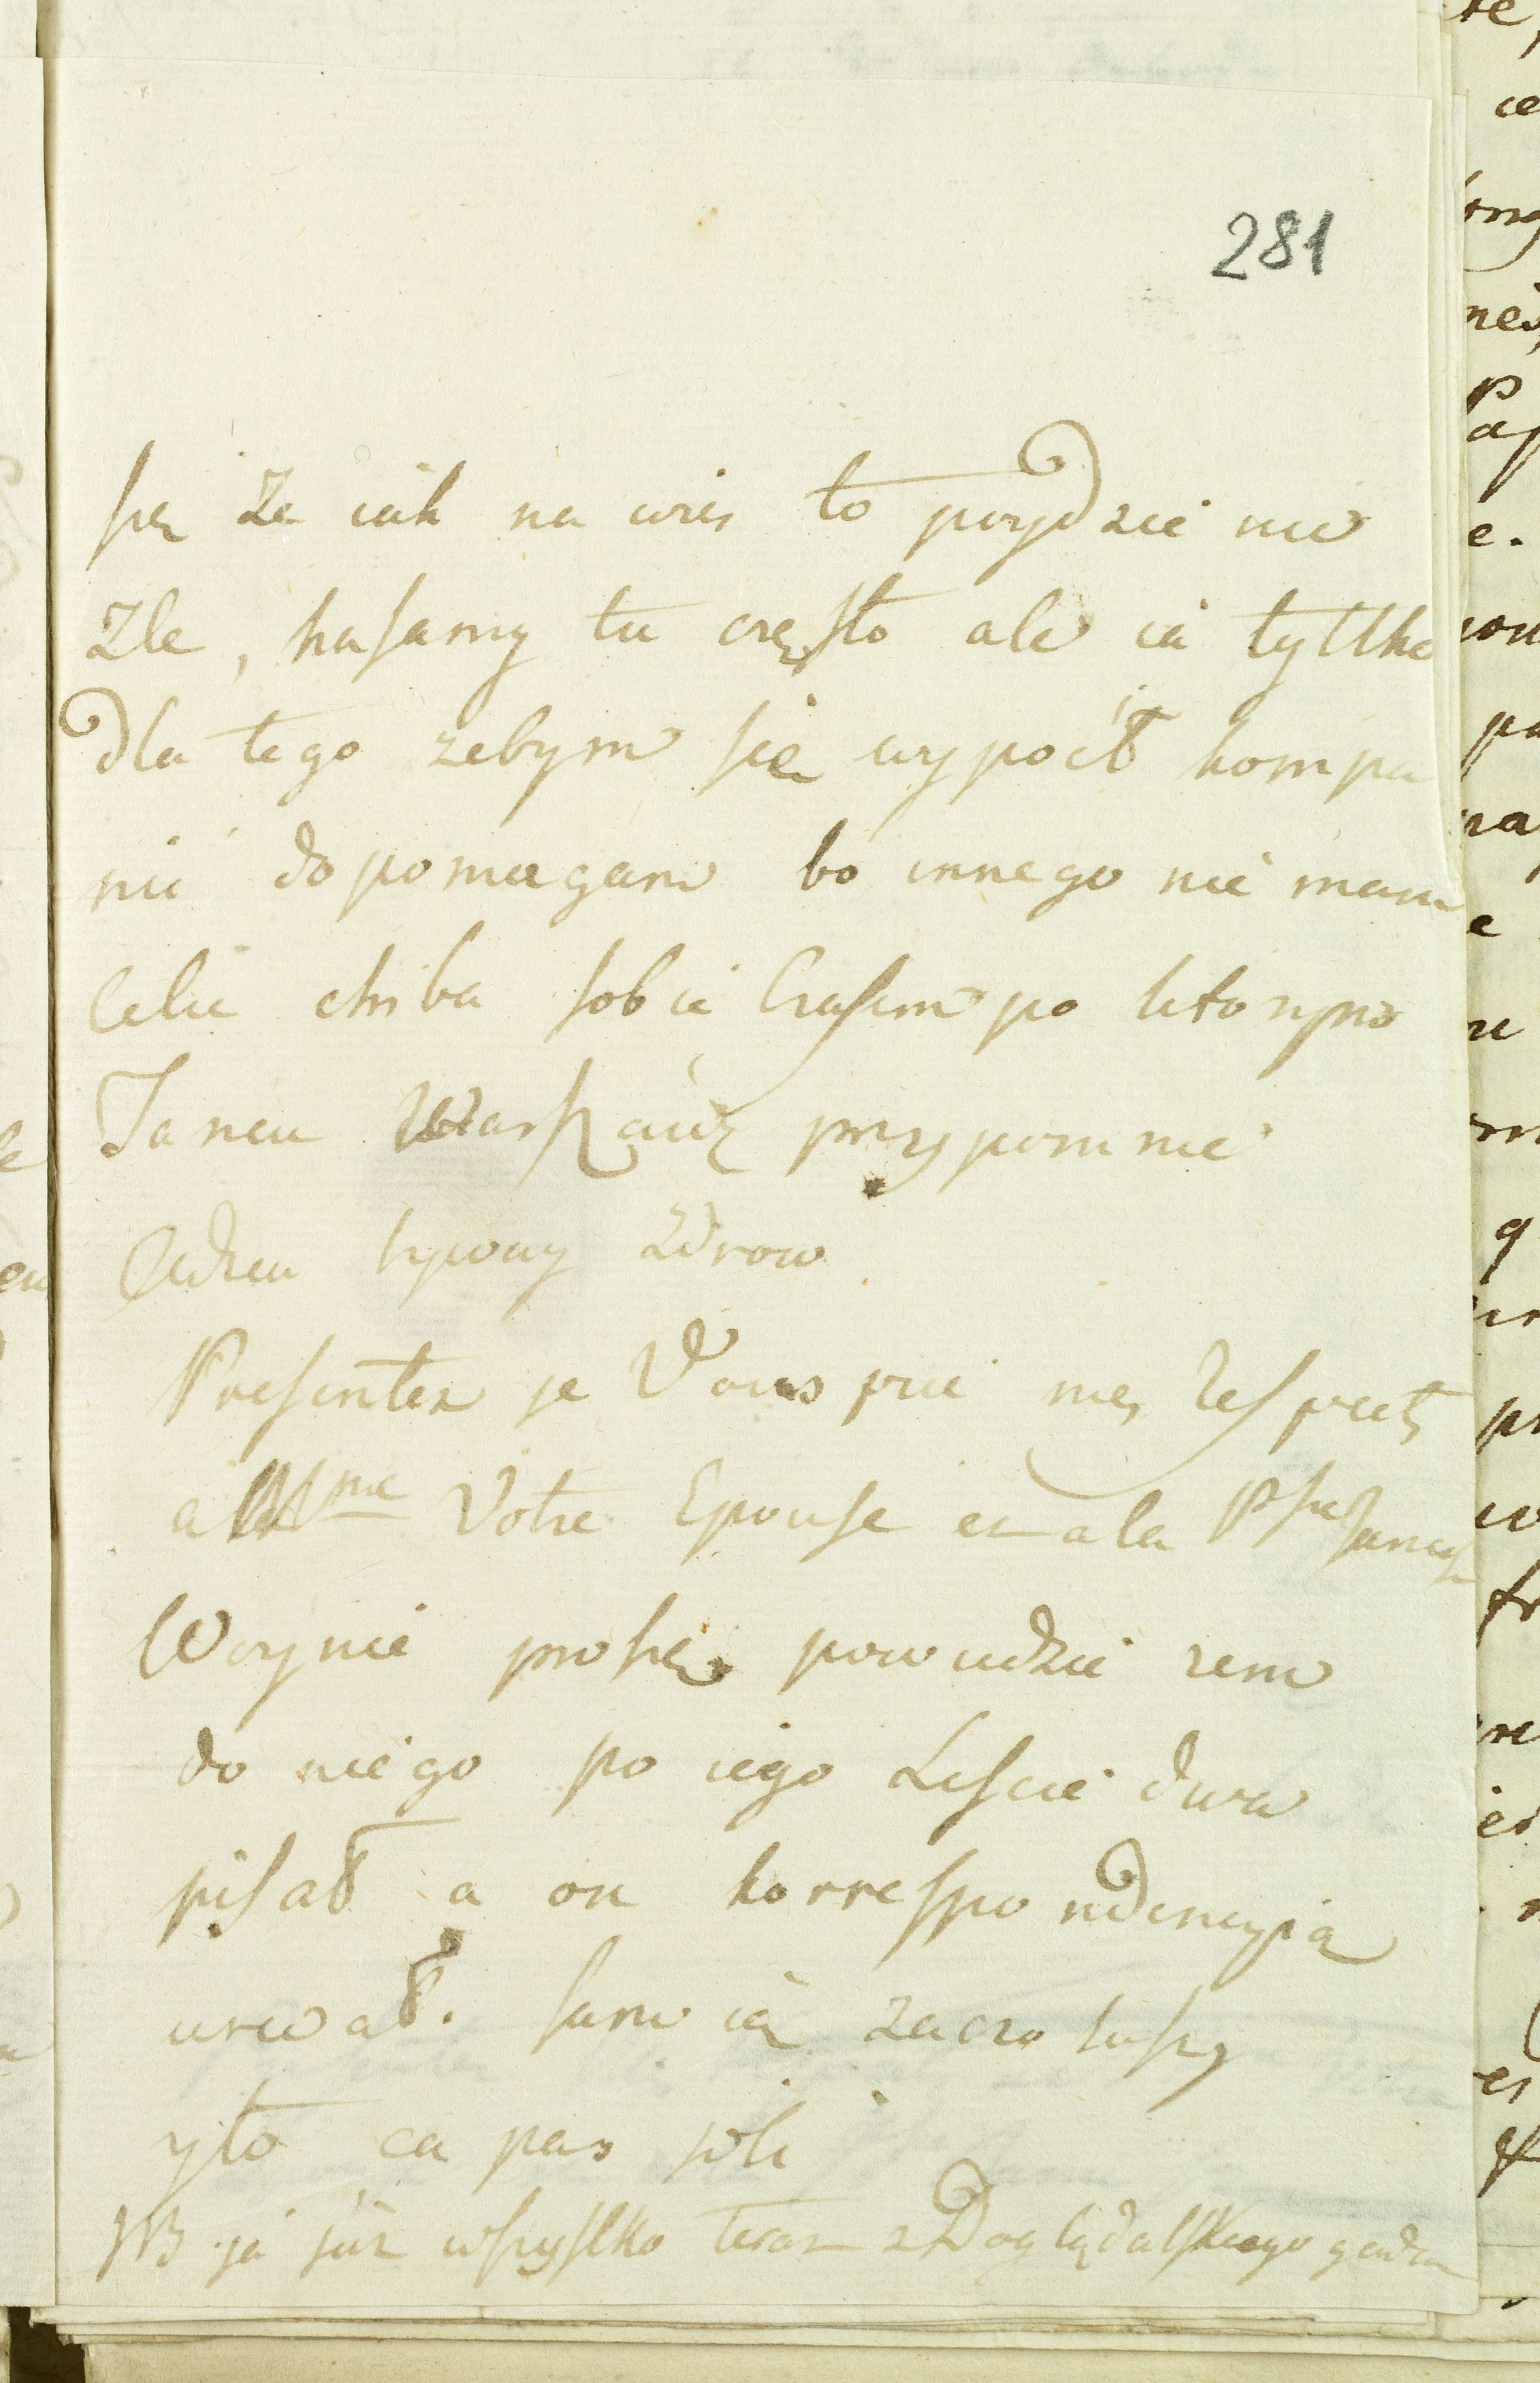 281
szę że iak na wieś to poydzie nie
Zle, hasamy tu często ale ia tyllko
dla tego zebym się wypocił kompa
nii dopomagam bo innego nie mam
Celu chiba sobie Czasem po ktorym
Tancu Warszawę przypomnie
Adieu bywaj Zdrow
Presentez je Vous prie mes Respects
a Mme Votre Epouse et a la
Woynie proszę powiedzieć zem
do niego po iego Liscie dwa
pisał a on korrespondencyią
urwał. sam ią zaczo wszy
yto ca pas joli
NB ja juz wszystko teraz z Doględalskiego gadam